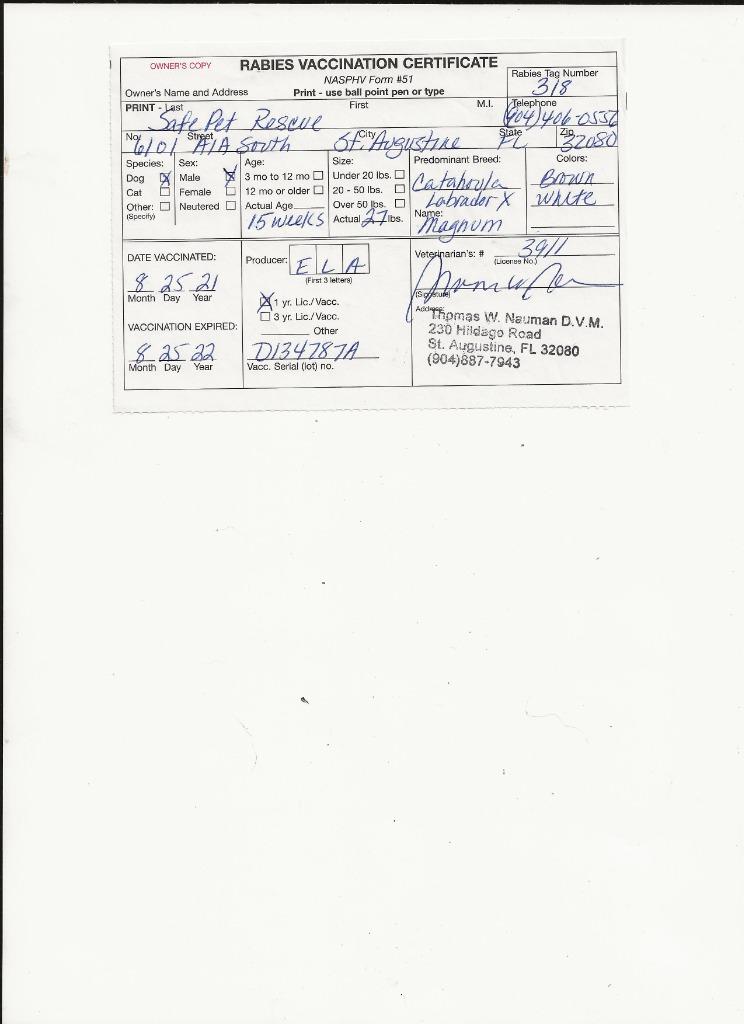 OWNER'S COPY
RABIES VACCINATION CERTIFICATE
NASPHV Form #51
Rabies Tag Number
318
Owner's Name and Address
Print - use ball point pen or type
PRINT - Last First M.I. Telephone
Safe Pet Rescue (904)406-0557
No. Street City State Zip
6101 A1A South St. Augustine FL 32080
Species: Sex: Age: Size: Predominant Breed: Colors:
Dog X Male X 3 mo to 12 mo Under 20 lbs. Catahoula Brown
Cat Female 12 mo or older 20 - 50 lbs. Labrador X White
Other: Neutered Actual Age Over 50 lbs. Name:
(Specify) 15 weeks Actual 27 lbs. Magnum
DATE VACCINATED: Producer: E L A Veterinarian's: # 3911
(First 3 letters) (License No.)
8 25 21
Month Day Year
X 1 yr. Lic./Vacc. (Signature)
3 yr. Lic./Vacc. Address:
VACCINATION EXPIRED: Other
8 25 22 D134787A
Month Day Year Vacc. Serial (lot) no.
Thomas W. Nauman D.V.M.
230 Hildago Road
St. Augustine, FL 32080
(904)887-7943